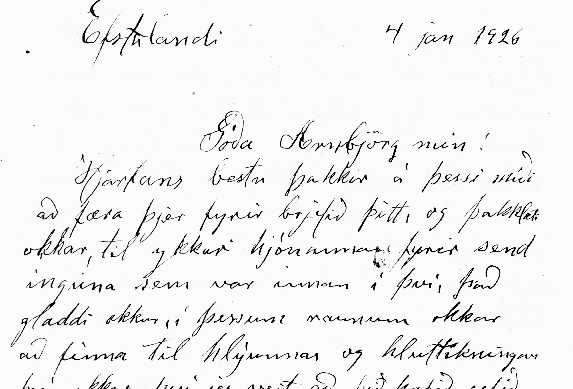 Efstalandi 4 jan 1926
Góða Arnbjörg mín!
Hjartans bestu þakkir á þessi miði
að færa þjer fyrir brjefið þitt, og þakklæti
okkar, til ykkar hjónanna fyrir send
inguna sem var innan í því, það
gladdi okkur, í þessum raunum okkar
að finna til hlýunnar og hluttekningar